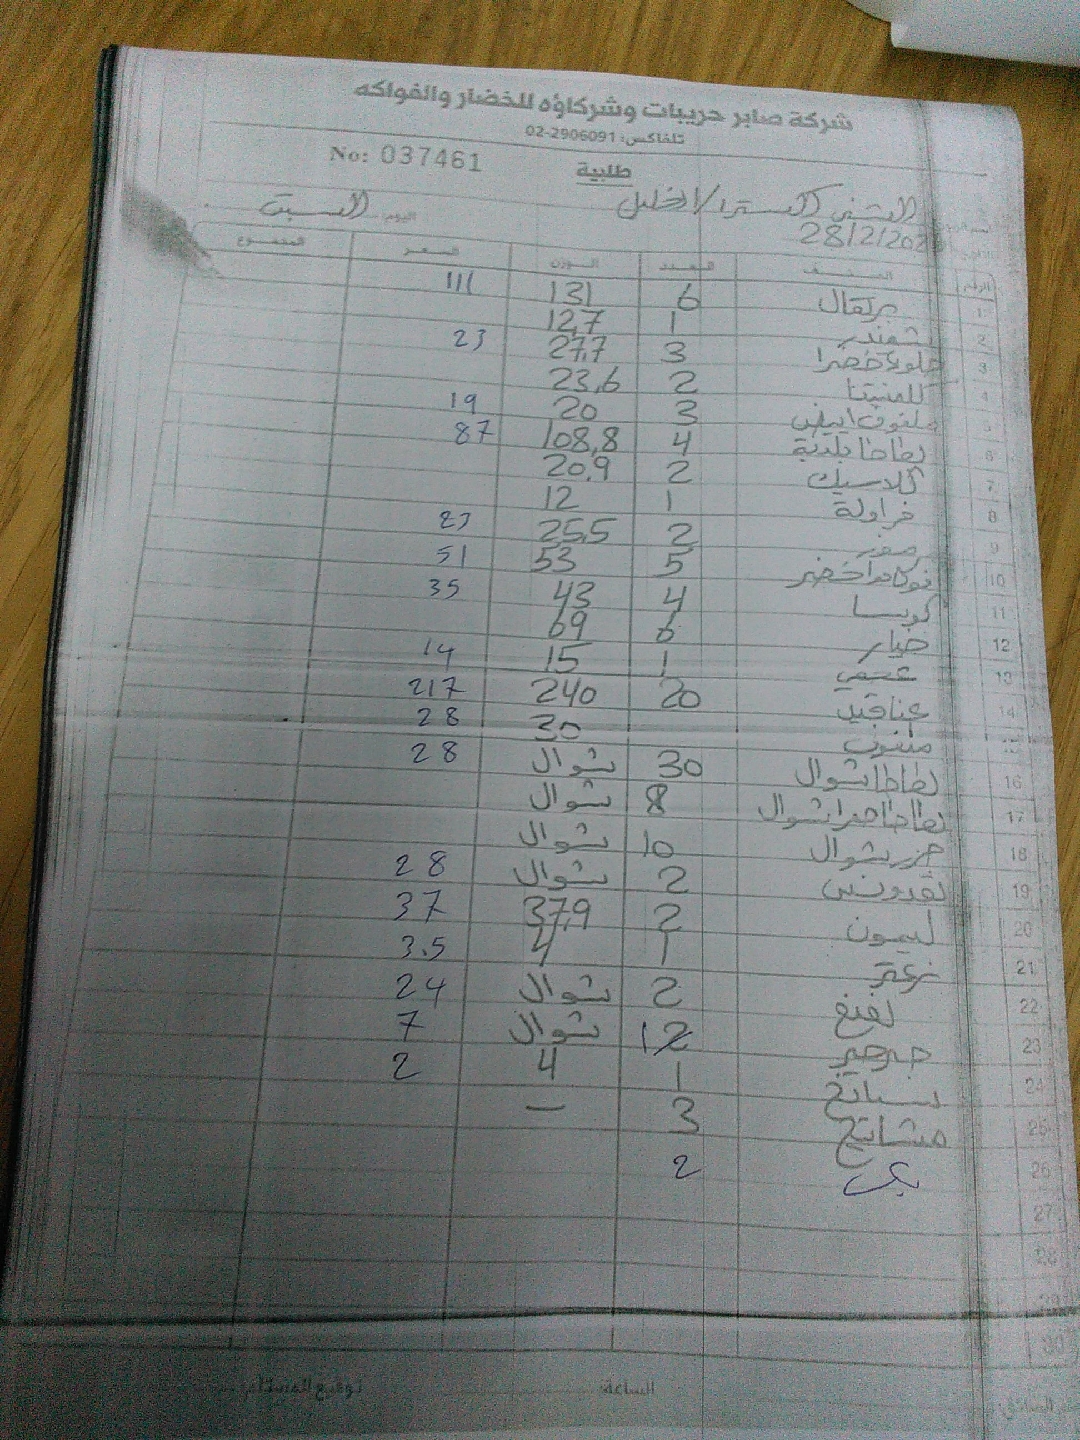 شركة صابر حريبات وشركاؤه للخضار والفواكه
تلفاكس: 02-2906091
No: 037461
طلبية
الخليل السبت
اليوم:
28/2/202
الرقم الصنف العدد الوزن السعر المجموع
1 برتقال 6 131 111
2 شمندر 1 12,7
3 حلوة خضرا 3 27,7 23
4 كلمنتينا 2 23,6
5 ملفوف ابيض 3 20 19
6 بطاطا بلدية 4 108,8 87
7 كلاسيك 2 20,9
8 فراولة 1 12
9 2 25,5 23
10 5 53 51
11 كوسا 4 43 35
12 خيار 6 69
13 1 15 14
14 عناقيد 20 240 217
15 30 28
16 بطاطا شوال 30 شوال 28
17 بطاطا حمرا شوال 8 شوال
18 جزر شوال 10 شوال
19 بقدونس 2 شوال 28
20 ليمون 2 37,9 37
21 زعتر 1 4 3.5
22 نعنع 2 شوال 24
23 جرجير شوال 7
24 سبانخ 1 4 2
25 3 —
26 2
27
28
29
30
الساعة: